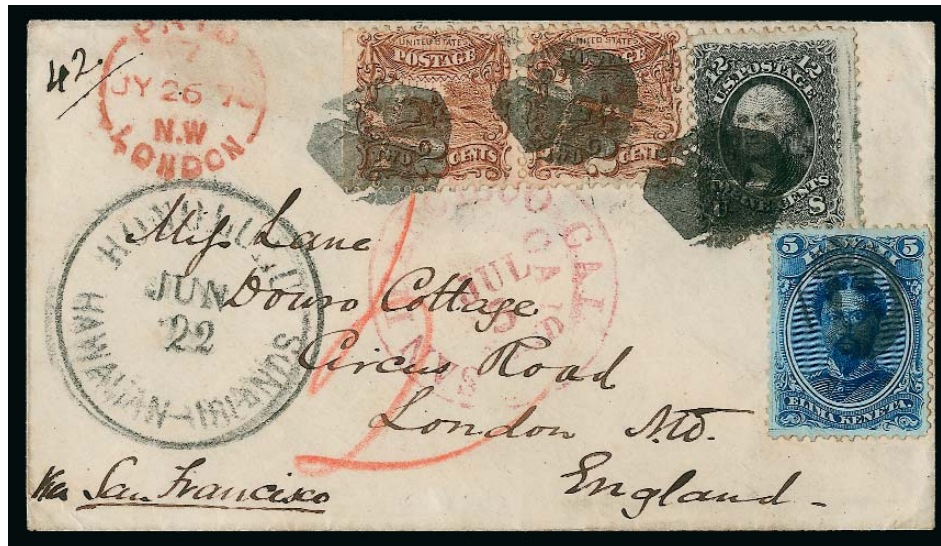 42
PAID
7
JY 26 70
N.W
LONDON
UNITED STATES
POSTAGE
TWO 2 CENTS
UNITED STATES
POSTAGE
TWO 2 CENTS
12 12
U.S. POSTAGE
CENTS
S
5 HAWAII 5
ELIMA KENETA.
HONOLULU
JUN
22
HAWAIIAN-ISLANDS
SAN CAL.
JUL
Miss Lane
Douro Cottage
Circus Road
London Nd.
England -
Via San Francisco